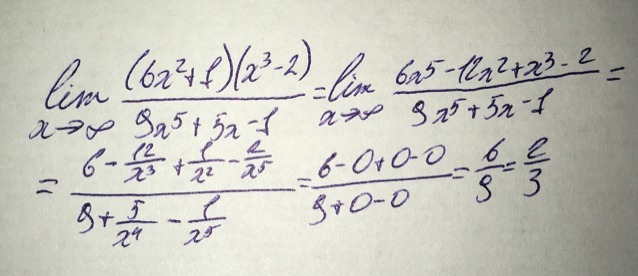 lim x→∞ (6x²+1)(x³-2) / 9x⁵+5x-1 = lim x→∞ 6x⁵-12x²+x³-2 / 9x⁵+5x-1 =
= 6 - 12/x³ + 1/x² - 2/x⁵ / 9 + 5/x⁴ - 1/x⁵ = 6-0+0-0 / 9+0-0 = 6/9 = 2/3